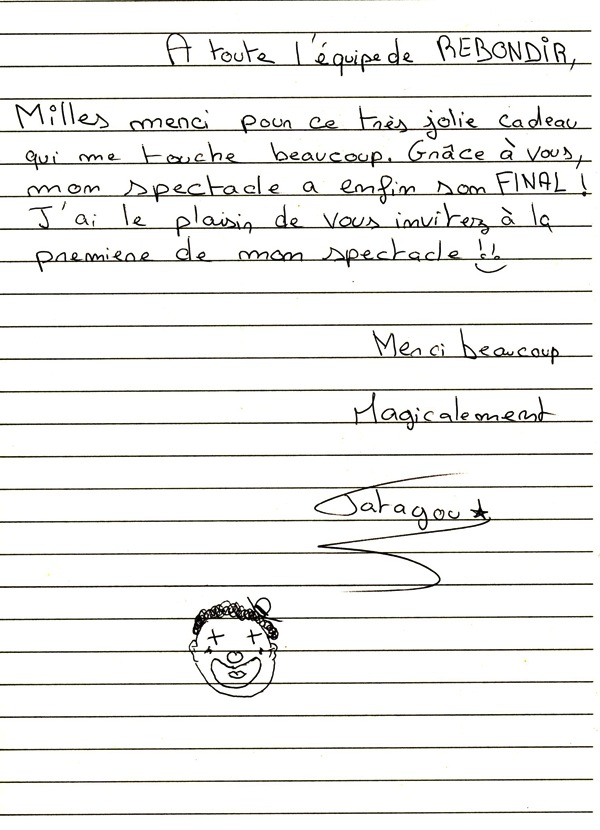 A toute l'équipe de REBONDIR,
Milles merci pour ce très jolie cadeau
qui me touche beaucoup. Grâce à vous,
mon spectacle a enfin son FINAL !
J'ai le plaisir de vous invitez à la
premiere de mon spectacle !!
Merci beaucoup
Magicalement
Tatagou